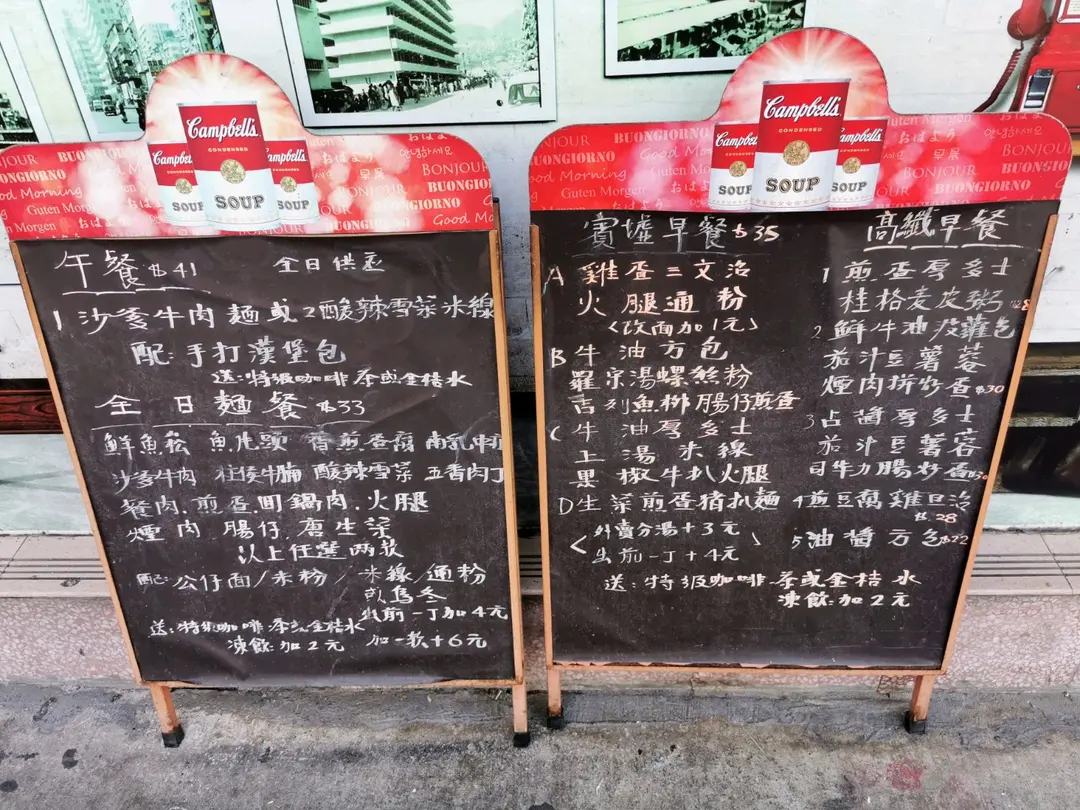 Campbell's
CONDENSED
SOUP
Campbell's
SOUP
Campbell's
SOUP
BONJOUR BUONGIORNO
Good Morning
Guten Morgen
おはよう
안녕하세요
早晨
BONJOUR
BUONGIORNO
午餐 $41 全日供應
1 沙爹牛肉麵或 2酸辣雪菜米線
配:手打漢堡包
送:特級咖啡 茶或金桔水
全日麵餐 $33
鮮魚崧 魚片頭 香煎蛋 南乳
沙爹牛肉 柱侯牛腩 酸辣雪菜 五香肉丁
餐肉.煎蛋 回鍋肉.火腿
煙肉 腸仔.唐生菜
以上任選両款
配:公仔面/米粉/米線/通粉
或烏冬
出前一丁加4元
送:特級咖啡 茶或金桔水
凍飲:加2元 加一款+6元
Campbell's
CONDENSED
SOUP
Campbell's
SOUP
Campbell's
SOUP
BONJOUR
BUONGIORNO
Good Morning
Guten Morgen
おはよう
早晨
BONJOUR
BUONGIORNO
賓墟早餐 $35
A 雞蛋三文治
火腿通粉
<改面加1元>
B 牛油方包
羅宋湯螺絲粉
吉列魚柳腸仔煎蛋
C 牛油厚多士
上湯米線
黑椒牛扒火腿
D 生菜煎蛋猪扒麵
<外賣分湯+3元
出前一丁+4元>
高纖早餐
1 煎蛋厚多士
桂格麦皮粥 $28
2 鮮牛油菠蘿包
茄汁豆薯蓉
煙肉拼炒蛋 $30
3 占醬厚多士
茄汁豆薯蓉
司華力腸炒蛋 $30
4 煎豆萬雞旦治
$28
5 油醬方包 $22
送:特級咖啡 茶或金桔水
凍飲:加2元